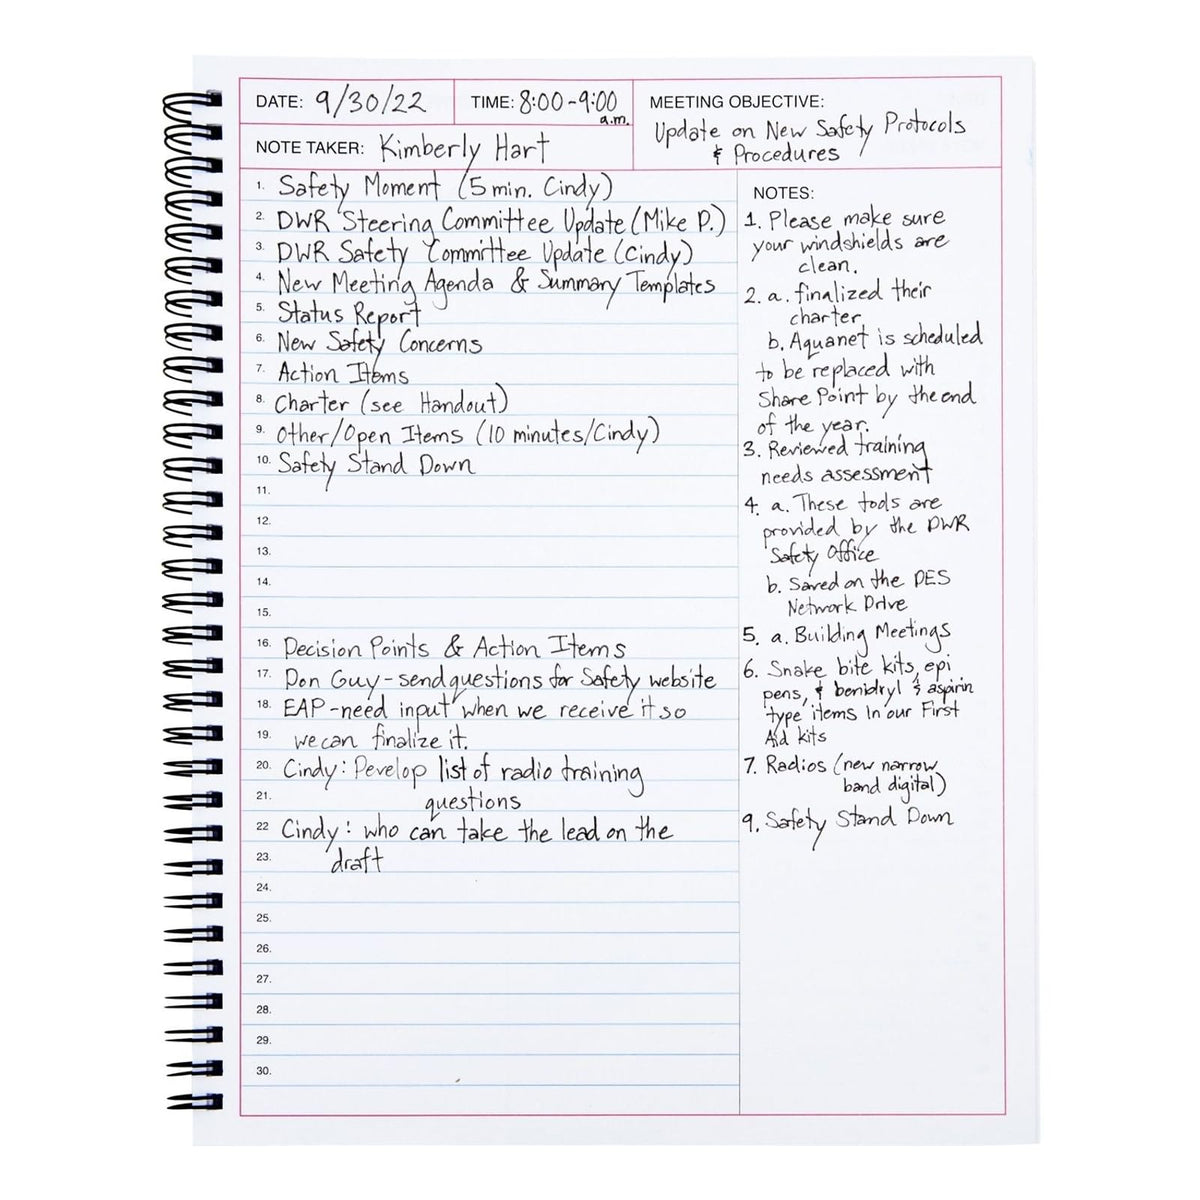 DATE: 9/30/22
TIME: 8:00-9:00
a.m.
NOTE TAKER: Kimberly Hart
MEETING OBJECTIVE:
Update on New Safety Protocols
& Procedures
1. Safety Moment (5 min. Cindy)
2. DWR Steering Committee Update (Mike P.)
3. DWR Safety Committee Update (Cindy)
4. New Meeting Agenda & Summary Templates
5. Status Report
6. New Safety Concerns
7. Action Items
8. Charter (see Handout)
9. Other/Open Items (10 minutes/Cindy)
10. Safety Stand Down
11.
12.
13.
14.
15.
16. Decision Points & Action Items
17. Don Guy-send questions for Safety website
18. EAP-need input when we receive it so
19. we can finalize it.
20. Cindy: Develop list of radio training
21. questions
22 Cindy: who can take the lead on the
23. draft
24.
25.
26.
27.
28.
29.
30.
NOTES:
1. Please make sure
your windshields are
clean.
2. a. finalized their
charter
b. Aquanet is scheduled
to be replaced with
Share Point by the end
of the year.
3. Reviewed training
needs assessment
4. a. These tools are
provided by the DWR
Safety Office
b. Saved on the DES
Network Drive
5. a. Building Meetings
6. Snake bite kits, epi
pens, & benidryl & aspirin
type items In our First
Aid kits
7. Radios (new narrow
band digital)
9. Safety Stand Down